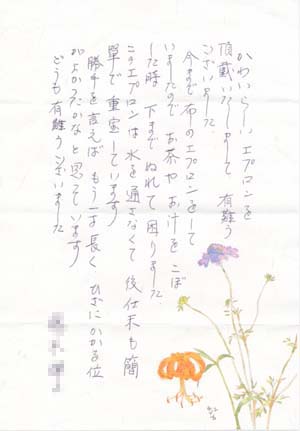 かわいらしい エプロンを
頂戴いたしまして 有難う
ございました
今まで布のエプロンをして
いましたので お茶や お汁を こぼ
した時 下まで ぬれて 困りました
このエプロンは 水を通さなくて 後仕末も 簡
単で 重宝しています
勝手を言えば もう一寸長く ひざにかかる位
がよかったかなと 思っています
どうも有難うございました